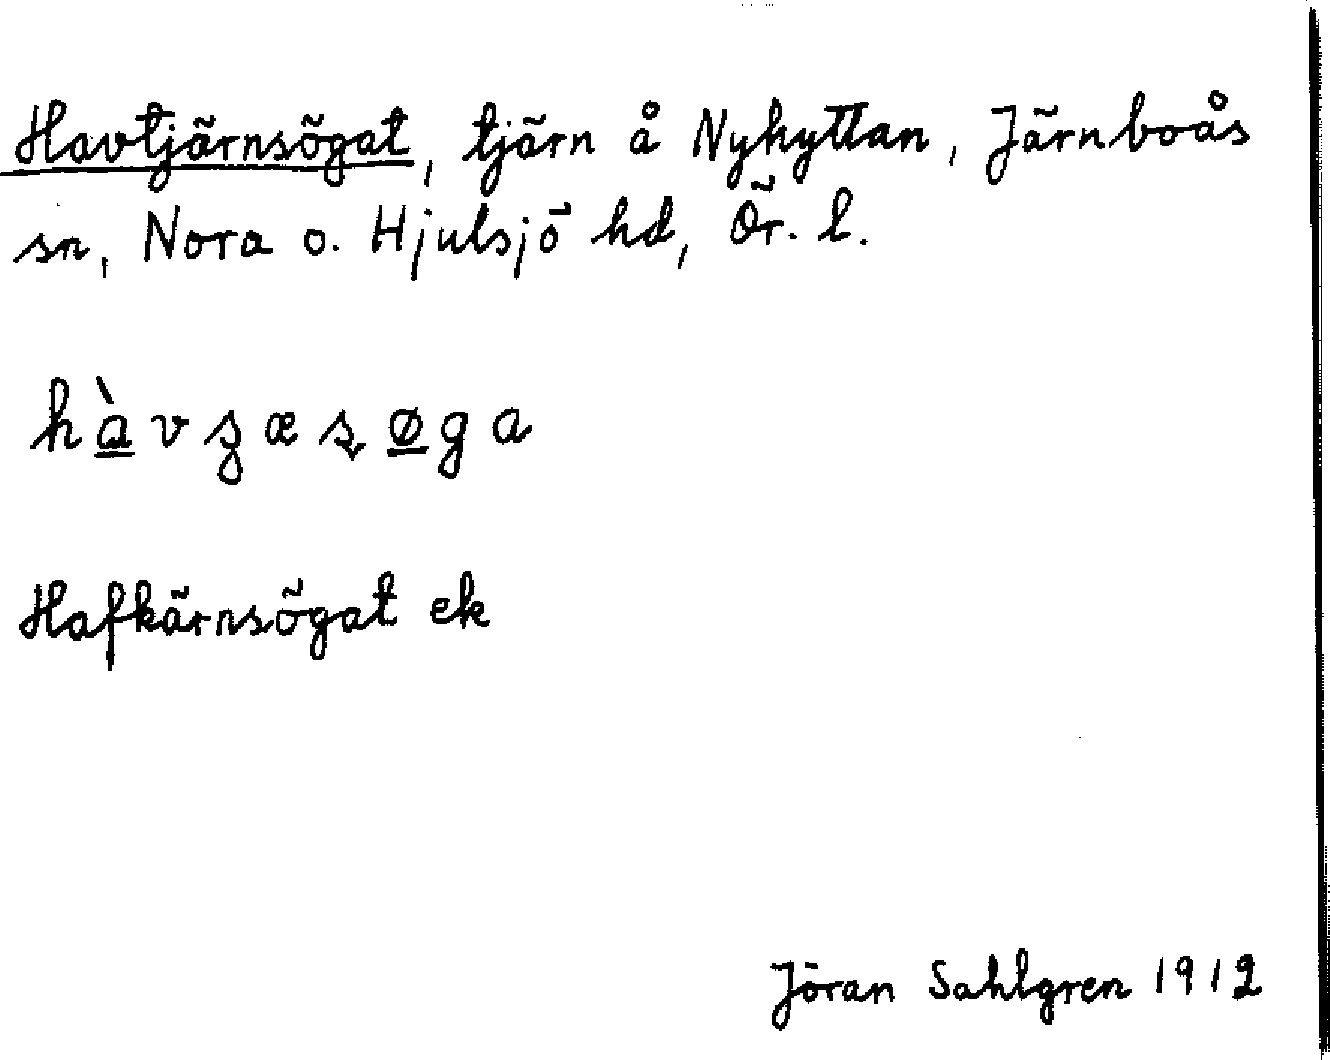 Havtjärnsögat, tjärn å Nyhyttan, Järnboås
sn, Nora o. Hjulsjö hd, Ör. l.
hàvʒæʂøga
Hafkärnsögat ek
Jöran Sahlgren 1912